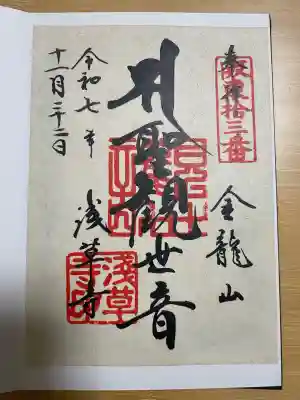 奉拝
坂東拾三番
金龍山
聖観世音
浅草寺
令和七年
十一月二十二日